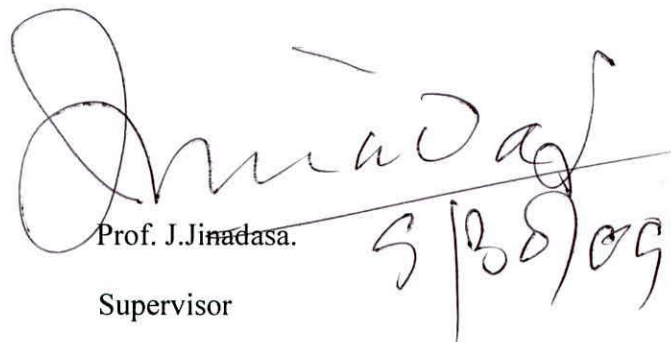 Jinadasa
Prof. J.Jinadasa.
Supervisor